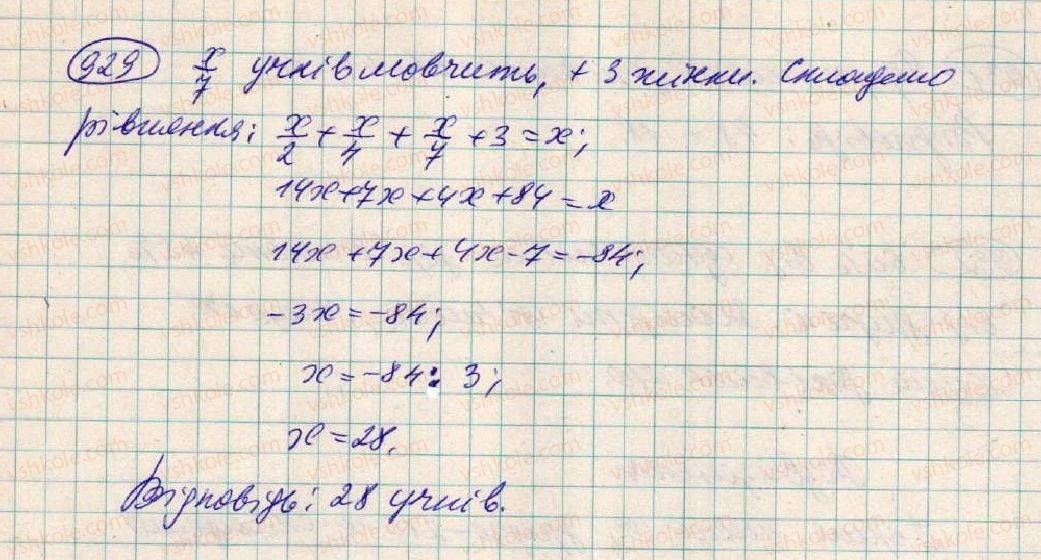 929 x/7 учнів мовчить, + 3 жінки. Складемо
рівняння: x/2 + x/4 + x/7 + 3 = x;
14x + 7x + 4x + 84 = x
14x + 7x + 4x - 7 = -84;
-3x = -84;
x = -84 : 3;
x = 28.
Відповідь: 28 учнів.
vshkole.com